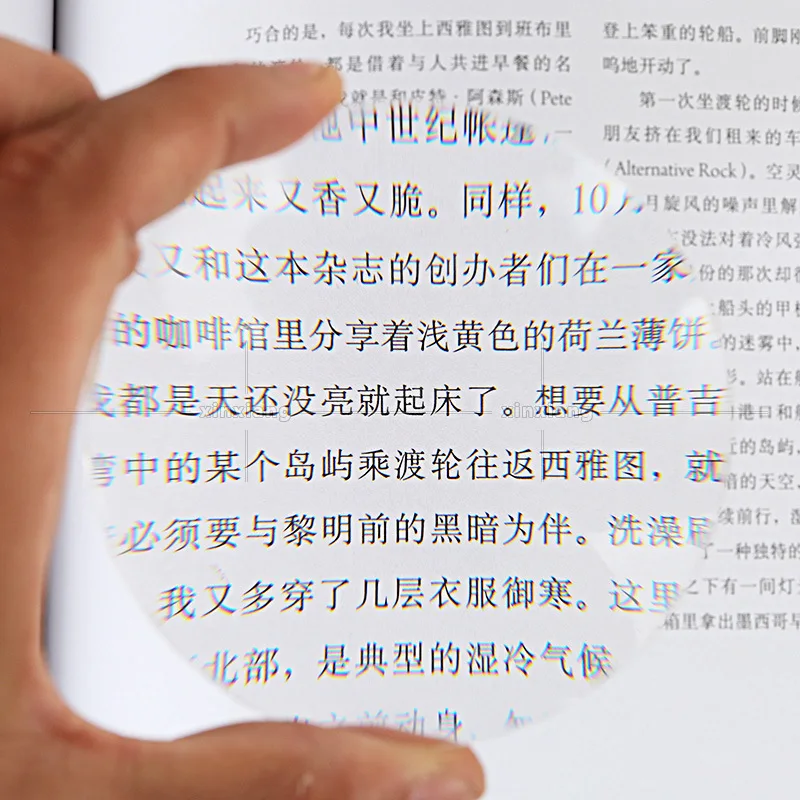 巧合的是，每次我坐上西雅图到班布里
都是借着与人共进早餐的名
就是和皮特·阿森斯（Pete
中世纪帐篷
起来又香又脆。同样，10月
又和这本杂志的创办者们在一家
的咖啡馆里分享着浅黄色的荷兰薄饼
我都是天还没亮就起床了。想要从普吉
湾中的某个岛屿乘渡轮往返西雅图，就
必须要与黎明前的黑暗为伴。洗澡
我又多穿了几层衣服御寒。这里
北部，是典型的湿冷气候
前动身
登上笨重的轮船。前脚刚
呜地开动了。
第一次坐渡轮的时候
朋友挤在我们租来的车
（Alternative Rock）。空灵
月旋风的噪声里解
没法对着冷风
份的那次却
船头的甲
的迷雾中，
站在
港口和
的岛屿
暗的天空
续前行，
了一种独特的
之下有一间灯
箱里拿出墨西哥早
xinxiang
xinxiang